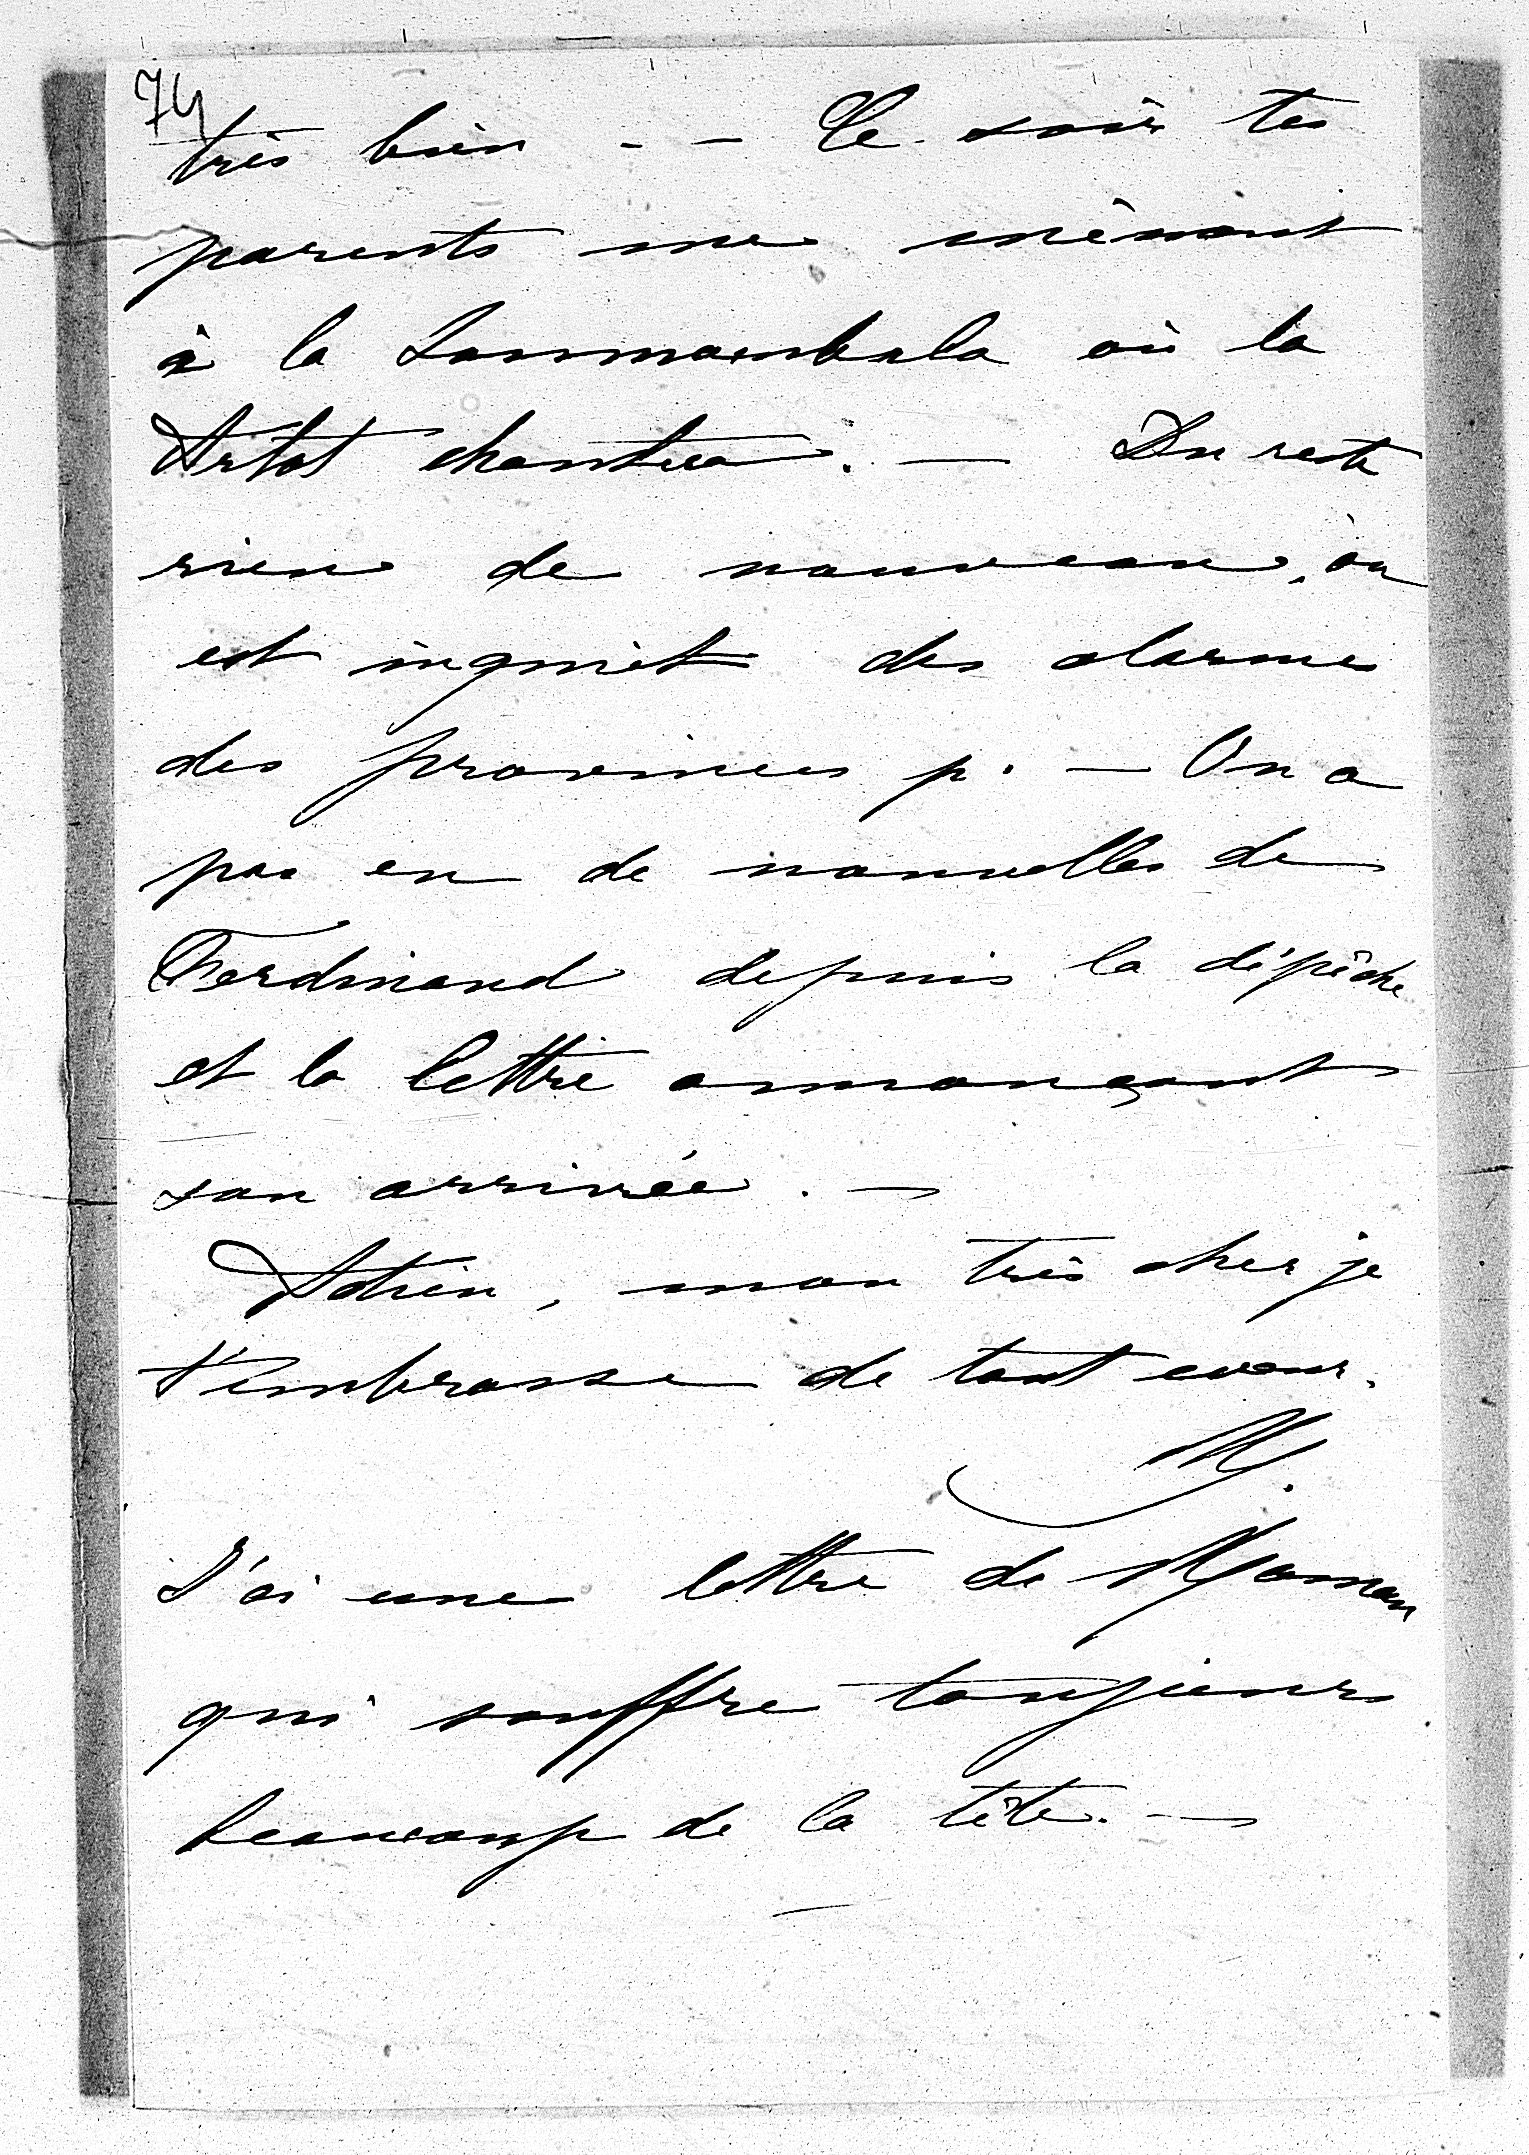 74
très bien . – Ce soir tes
parents me mènent
à la Sonnambula où la
Artot chantera. — Du reste
rien de nouveau, on
est inquiet des alarmes
des provinces p. — On a
pas eu de nouvelles de
Ferdinand depuis la dépêche
et la lettre annonçant
son arrivée. —
Adieu, mon très cher je
t'embrasse de tout coeur.
M.
J'ai une lettre de Maman
qui souffre toujours
beaucoup de la tête. —